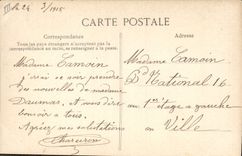 Le 24 3/1915
CARTE POSTALE
Correspondance
Tous les pays étrangers n'acceptent pas la
correspondance au recto, se renseigner à la poste.
Adresse
Madame Tamoin
J'irai ce soir prendre
des nouvelles de madame
Daumas, et vous dire
bonsoir a tous.
Agréez mes salutations
Madame Tamoin
Bd National 16
au 1er étage a gauche
en Ville